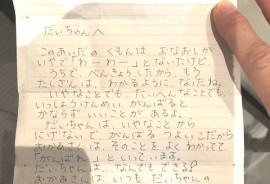 だいちゃんへ
このあいだの くもんは、おなおしが
いやで「わーわー」とないたけど、
うちで べんきょうしたから、もう
たしざんは、わかるように なったね。
いやなことでも、たいへんなことでも、
いっしょうけんめい がんばると
かならず いいことが あるよ。
だいちゃんは、いやなことから
にげないで、がんばる つよいこだから
おかあさんは、そのことを よくわかってて
「がんばれ」といっています。
だいちゃんは、なんでもできる!
おかあさんは、いつも だいちゃんの